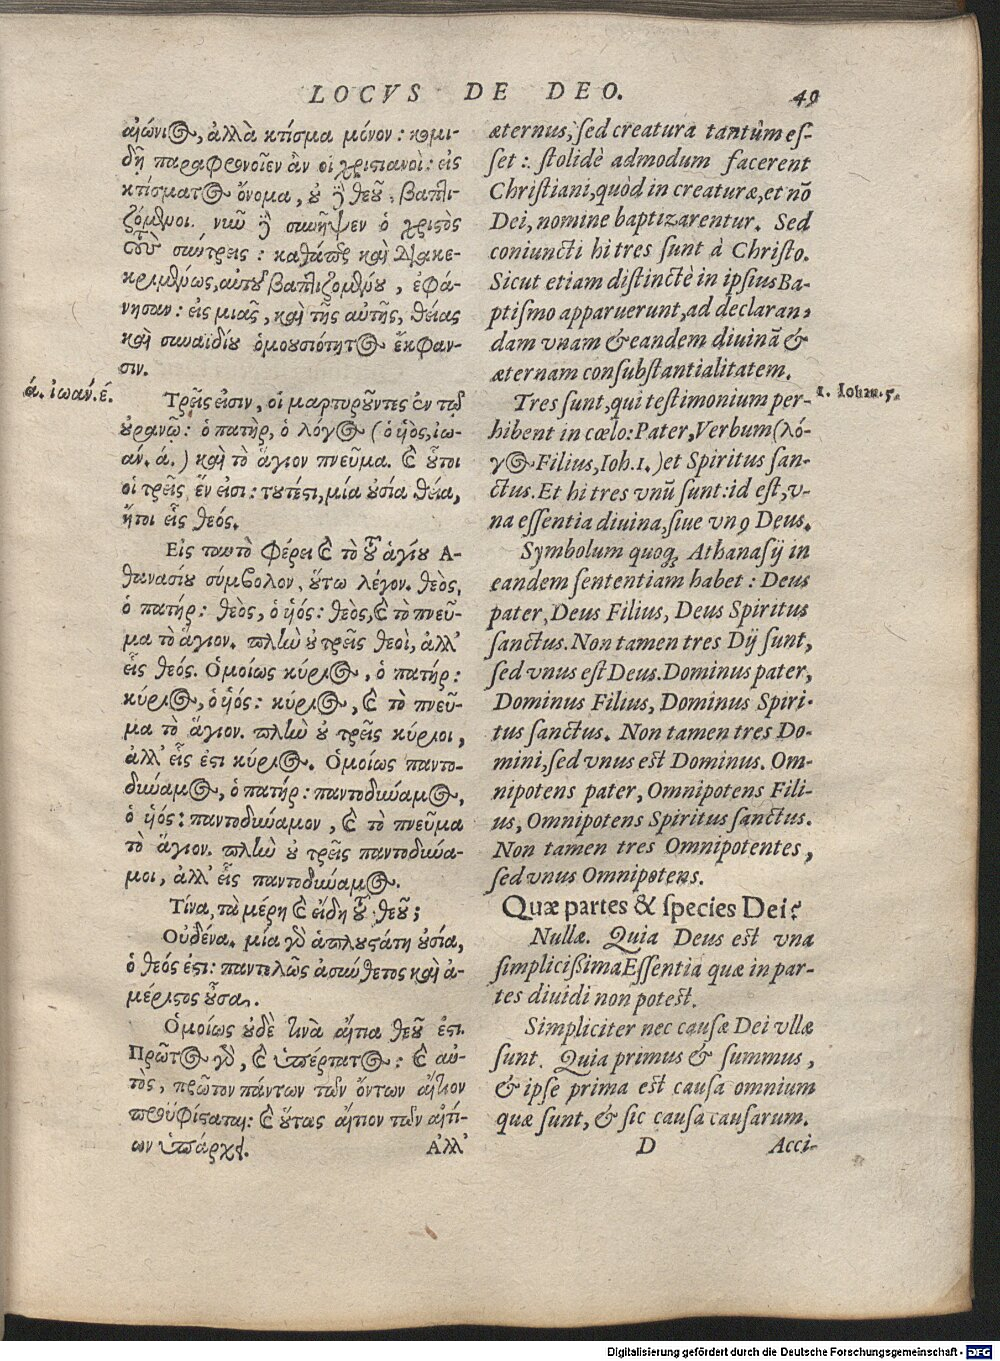 LOCVS DE DEO. 49
αἰώνιος, ἀλλὰ κτίσμα μόνον: κομι-
δῇ παραφρονοῖεν ἂν οἱ χριστιανοὶ: εἰς
κτίσματος ὄνομα, οὐ γὰρ θεοῦ, βαπτι-
ζόμενοι. νῦν γὰρ συνῆψεν ὁ χριστὸς
τοὺς σύντρεις: καθάπερ καὶ διακε-
κριμένως, αὐτοῦ βαπτιζομένου, ἐφά-
νησαν: εἰς μιᾶς, καὶ τῆς αὐτῆς, θείας
καὶ συναϊδίου ὁμουσιότητος ἔκφαν-
σιν.
ά. ἰωάν. έ.
Τρεῖς εἰσιν, οἱ μαρτυροῦντες ἐν τῷ
οὐρανῷ: ὁ πατὴρ, ὁ λόγος (ὁ υἱός, ἰω-
αν. ά.) καὶ τὸ ἅγιον πνεῦμα. καὶ οὗτοι
οἱ τρεῖς ἕν εἰσι: τουτέστι, μία οὐσία θεία,
ἤτοι εἷς θεός.
Εἰς ταυτὸ φέρει καὶ τὸ τοῦ ἁγίου Α-
θανασίου σύμβολον, οὕτω λέγον. θεὸς,
ὁ πατήρ: θεὸς, ὁ υἱός: θεὸς, καὶ τὸ πνεῦ-
μα τὸ ἅγιον. πλὴν οὐ τρεῖς θεοὶ, ἀλλ'
εἷς θεός. Ὁμοίως κύριος, ὁ πατήρ:
κύριος, ὁ υἱός: κύριος, καὶ τὸ πνεῦ-
μα τὸ ἅγιον. πλὴν οὐ τρεῖς κύριοι,
ἀλλ' εἷς ἐστι κύριος. Ὁμοίως παντο-
δύναμος, ὁ πατήρ: παντοδύναμος,
ὁ υἱός: παντοδύναμον, καὶ τὸ πνεῦμα
τὸ ἅγιον. πλὴν οὐ τρεῖς παντοδύνα-
μοι, ἀλλ' εἷς παντοδύναμος.
Τίνα, τὰ μέρη καὶ εἴδη τοῦ θεοῦ;
Οὐδένα. μία γὰρ ἁπλουστάτη οὐσία,
ὁ θεός ἐστι: παντελῶς ἀσύνθετος καὶ ἀ-
μέριστος οὖσα.
Ὁμοίως οὐδὲ τινὰ αἴτια θεοῦ ἐστι.
Πρῶτος γὰρ, καὶ ὑπέρτατος: καὶ αὐ-
τὸς, πρῶτον πάντων τῶν ὄντων αἴτιον
προϋφίσταται: καὶ οὕτως αἴτιον τῶν αἰτί-
ων ὑπάρχει. Ἀλλ'
æternus, sed creatura tantùm es-
set: stolidè admodum facerent
Christiani, quòd in creaturæ, et nō
Dei, nomine baptizarentur. Sed
coniuncti hi tres sunt à Christo.
Sicut etiam distinctè in ipsius Ba-
ptismo apparuerunt, ad declaran-
dam vnam & eandem diuinā &
æternam consubstantialitatem.
Tres sunt, qui testimonium per-
1. Iohan. 5.
hibent in cœlo: Pater, Verbum (λό-
γος Filius, Ioh. 1.) et Spiritus san-
ctus. Et hi tres vnū sunt: id est, v-
na essentia diuina, siue vnꝰ Deus.
Symbolum quoqꝫ Athanasij in
eandem sententiam habet: Deus
pater, Deus Filius, Deus Spiritus
sanctus. Non tamen tres Dij sunt,
sed vnus est Deus. Dominus pater,
Dominus Filius, Dominus Spiri-
tus sanctus. Non tamen tres Do-
mini, sed vnus est Dominus. Om-
nipotens pater, Omnipotens Fili-
us, Omnipotens Spiritus sanctus.
Non tamen tres Omnipotentes,
sed vnus Omnipotens.
Quæ partes & species Dei?
Nullæ. Quia Deus est vna
simplicißima Essentia quæ in par-
tes diuidi non potest.
Simpliciter nec causæ Dei vllæ
sunt. Quia primus & summus,
& ipse prima est causa omnium
quæ sunt, & sic causa causarum.
D Acci-
Digitalisierung gefördert durch die Deutsche Forschungsgemeinschaft - DFG